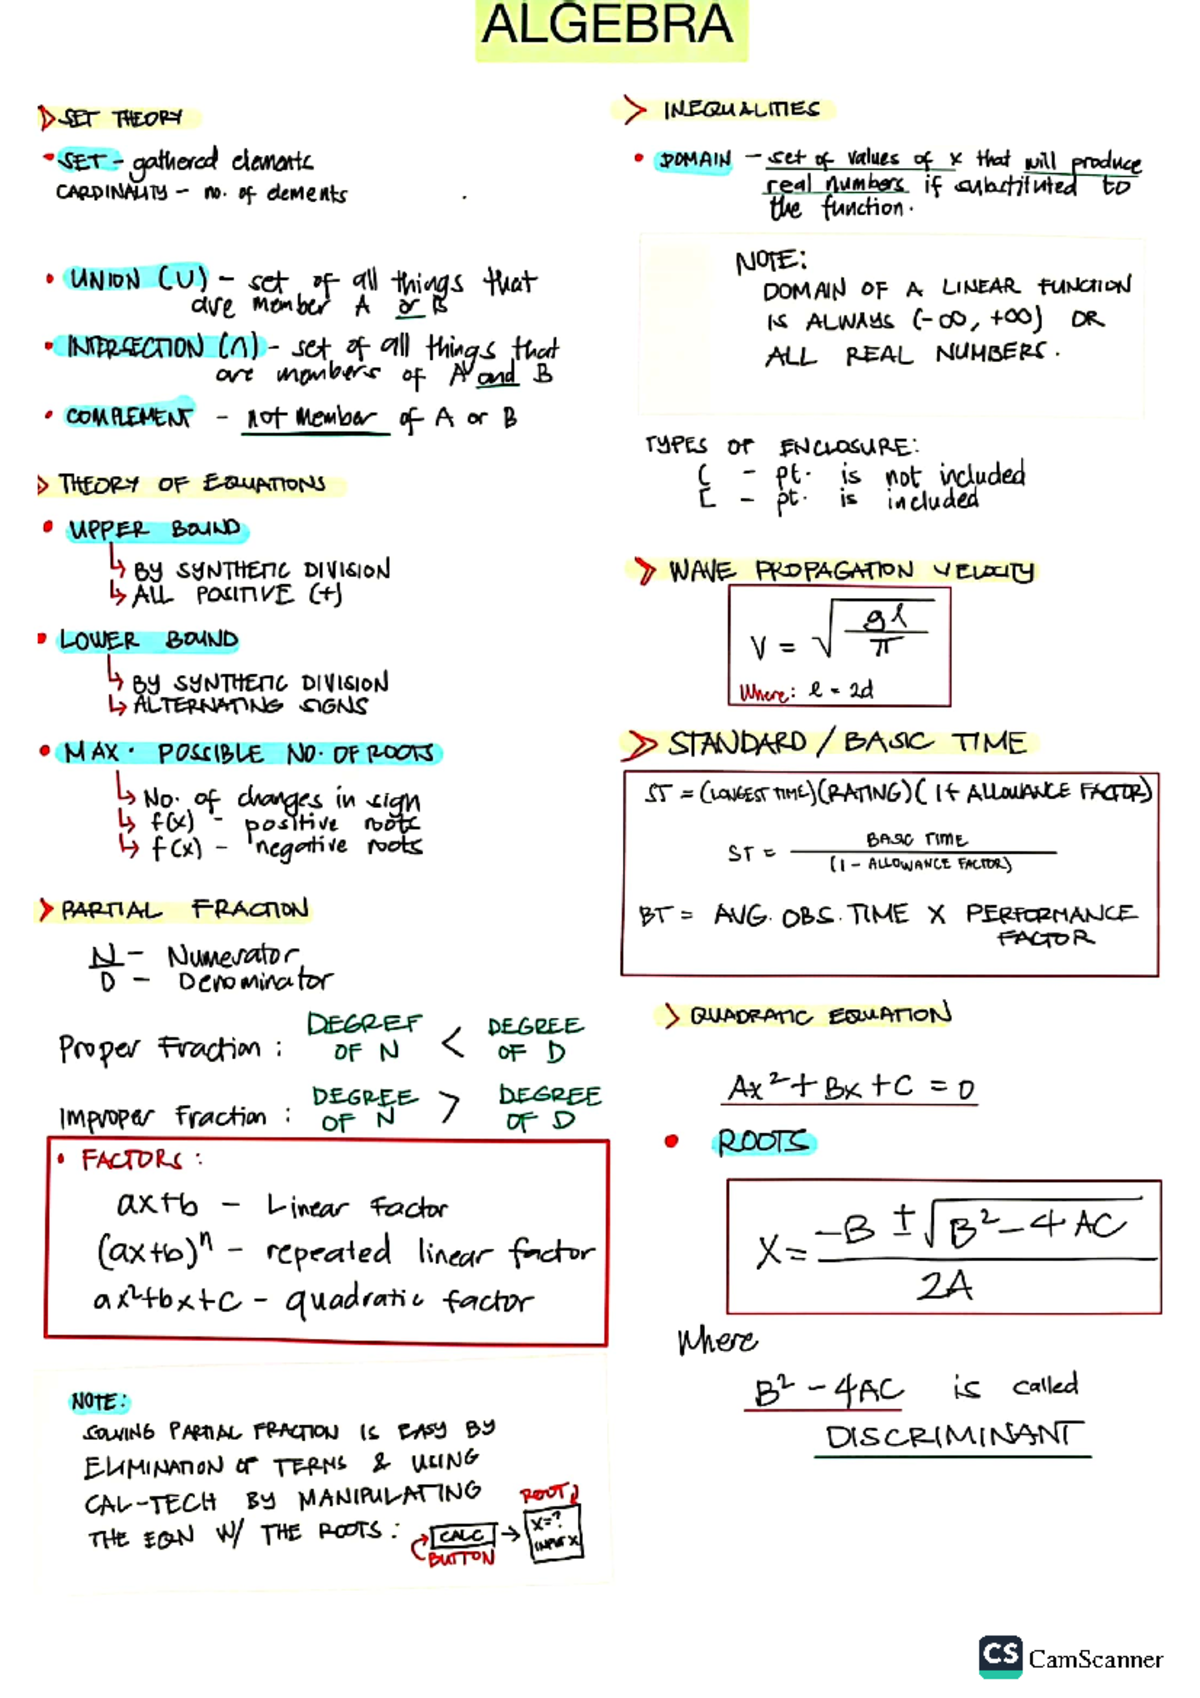 ALGEBRA
SET THEORY
SET - gathered elements
CARDINALITY - no. of elements
UNION (U) - set of all things that
are member A or B
INTERSECTION (∩) - set of all things that
are members of A and B
COMPLEMENT - not member of A or B
THEORY OF EQUATIONS
UPPER BOUND
BY SYNTHETIC DIVISION
ALL POSITIVE (+)
LOWER BOUND
BY SYNTHETIC DIVISION
ALTERNATING SIGNS
MAX. POSSIBLE NO. OF ROOTS
No. of changes in sign
f(x) - positive roots
f(x) - negative roots
PARTIAL FRACTION
N - Numerator
D - Denominator
Proper Fraction : DEGREE OF N < DEGREE OF D
Improper Fraction : DEGREE OF N > DEGREE OF D
FACTORS :
ax+b - Linear Factor
(ax+b)ⁿ - repeated linear factor
ax²+bx+c - quadratic factor
NOTE:
SOLVING PARTIAL FRACTION IS EASY BY
ELIMINATION OF TERMS & USING
CAL-TECH BY MANIPULATING
THE EQN W/ THE ROOTS :
CALC
BUTTON
ROOT
X=?
INPUT X
INEQUALITIES
DOMAIN - set of values of x that will produce
real numbers if substituted to
the function.
NOTE:
DOMAIN OF A LINEAR FUNCTION
IS ALWAYS (-∞, +∞) OR
ALL REAL NUMBERS.
TYPES OF ENCLOSURE:
( - pt. is not included
[ - pt. is included
WAVE PROPAGATION VELOCITY
V = √(gl/π)
Where: l = 2d
STANDARD / BASIC TIME
ST = (LONGEST TIME)(RATING)(1+ ALLOWANCE FACTOR)
ST = BASIC TIME / (1 - ALLOWANCE FACTOR)
BT = AVG. OBS. TIME X PERFORMANCE
FACTOR
QUADRATIC EQUATION
Ax² + Bx + C = 0
ROOTS
X = (-B ± √(B² - 4AC)) / 2A
Where
B² - 4AC is called
DISCRIMINANT
CS CamScanner